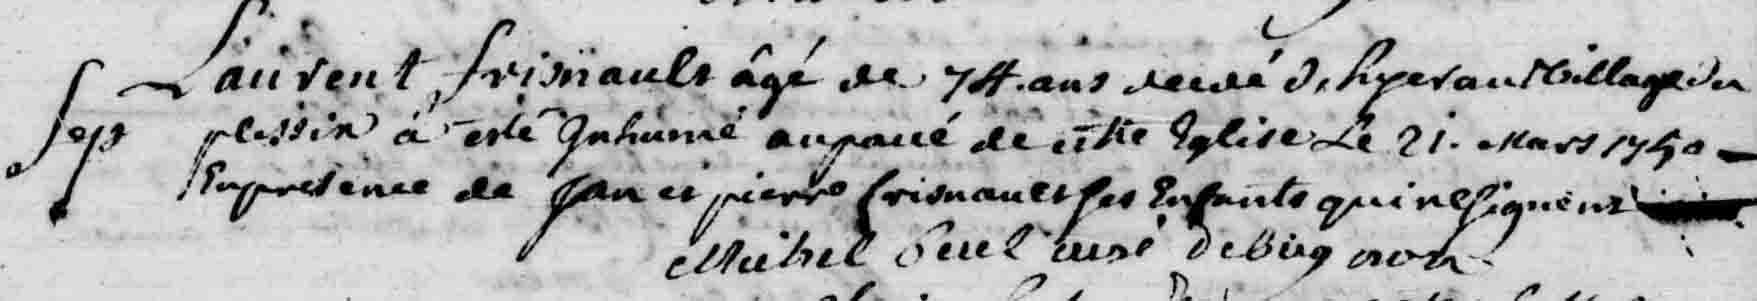 Laurent frisnault âgé de 74. ans decedé d'hyer au Village du
Sep plessix à esté Inhumé au pavé de cette Eglise Le 21. Mars 1750
En presence de Jan et pierre frisnault ses Enfants qui ne signent
Michel curé de